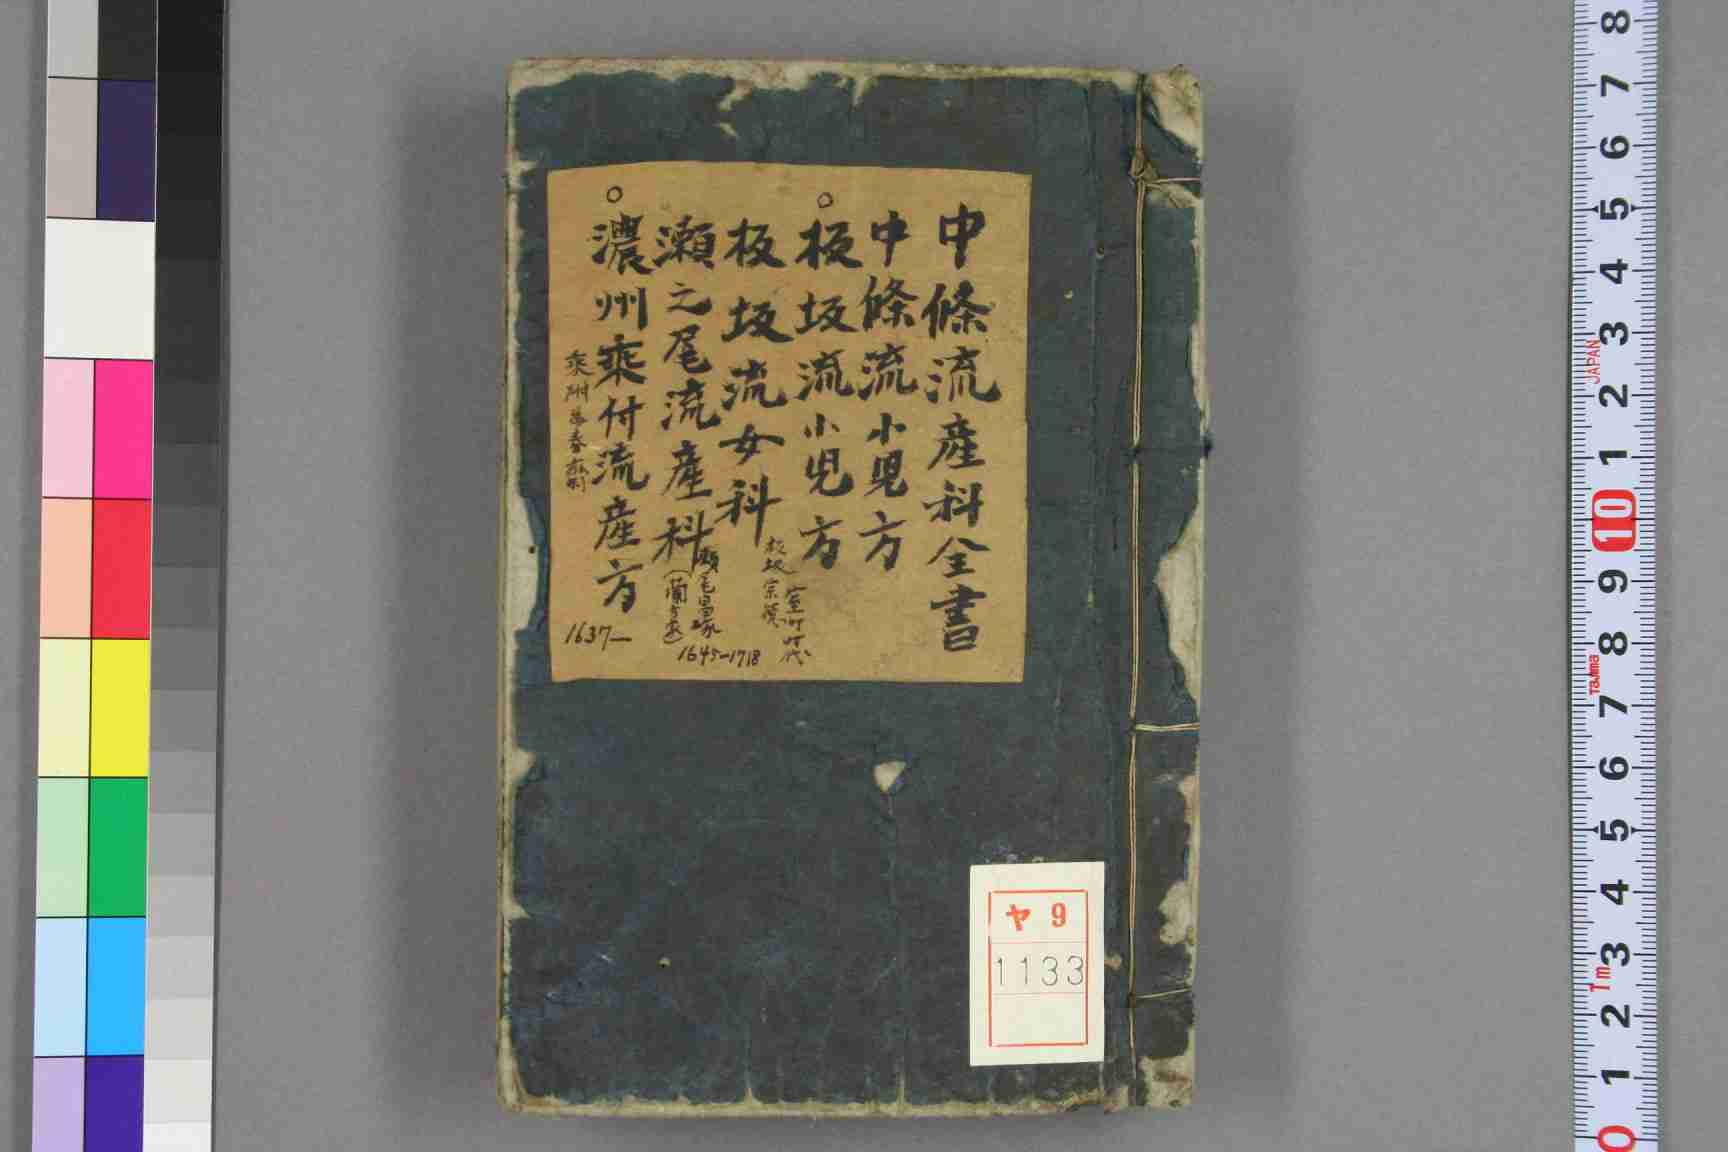 中條流産科全書
中條流小児方
○板坂流小児方
板坂流女科
板坂宗
室町時代
瀬之尾流産科
瀬尾昌琢
1645-1718
○濃州乗付流産方
1637—
ヤ 9
1133
8 7 6 5 4 3 2 1 10 9 8 7 6 5 4 3 2 1 0
JAPAN
Tajima
1m